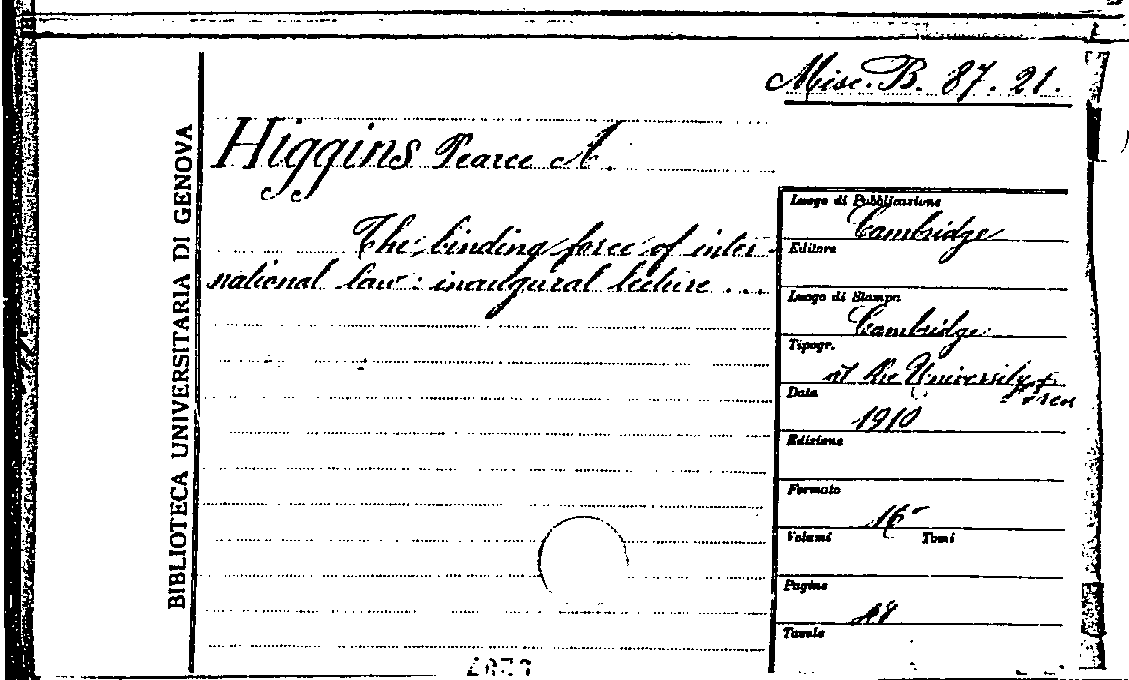 Misc. B. 87. 21.
BIBLIOTECA UNIVERSITARIA DI GENOVA
Higgins Pearce A.
The binding force of inter-
national law: inaugural lecture ...
Luogo di Pubblicazione
Cambridge
Editore
Luogo di Stampa
Cambridge
Tipogr.
at the University Press
Data
1910
Edizione
Formato
16°
Volumi Tomi
Pagine
48
Tavole